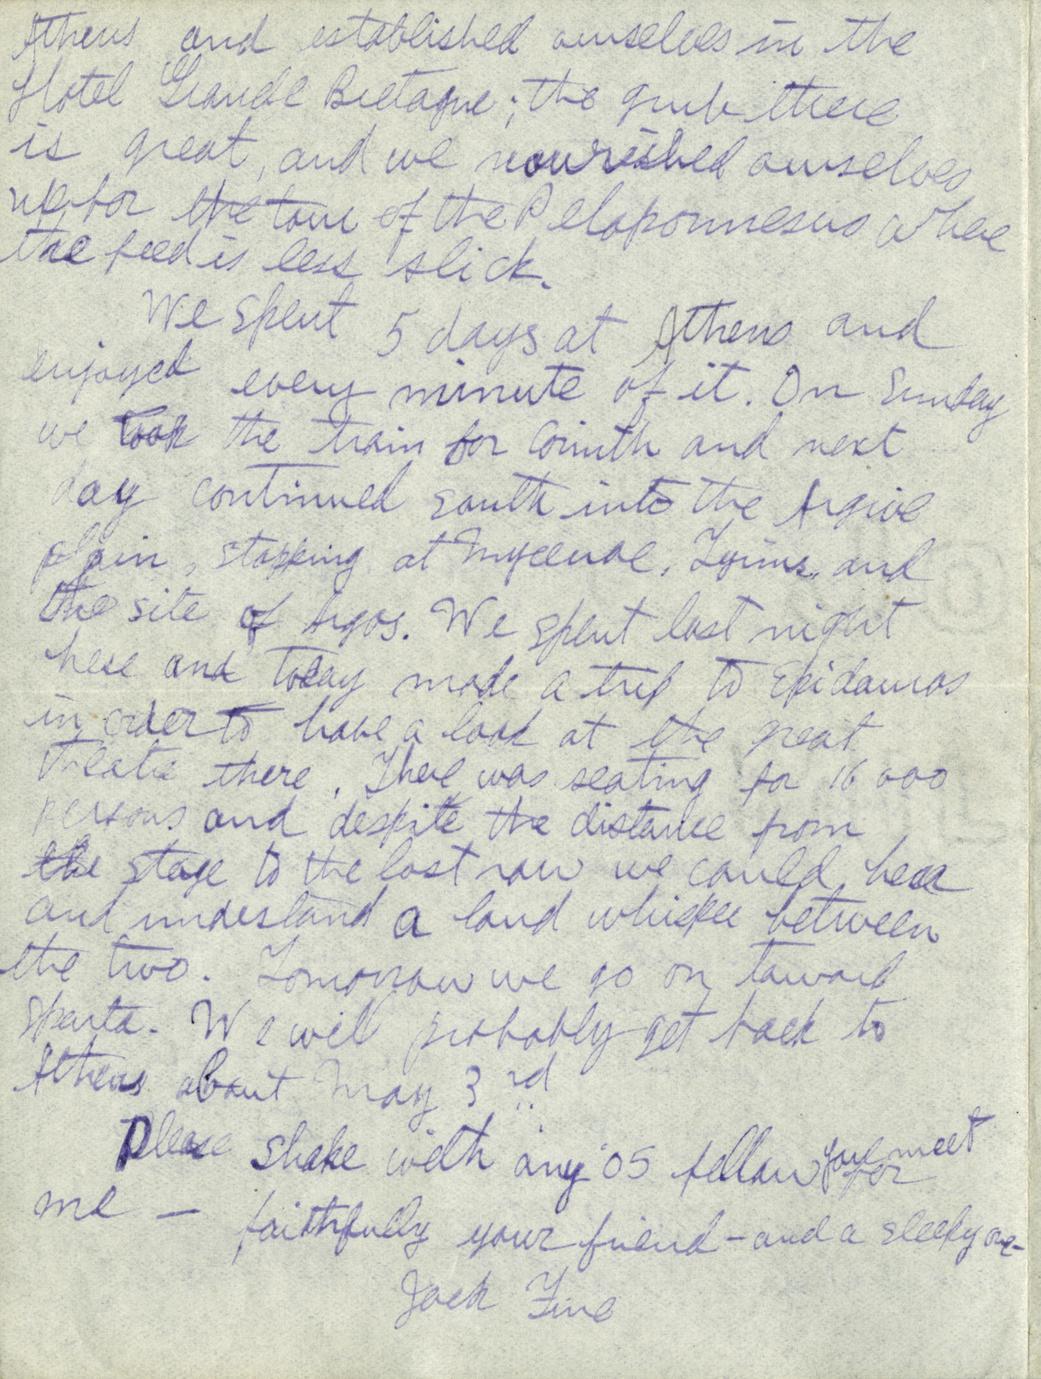 Athens and established ourselves in the
Hotel Grande Bretagne; the grub there
is great, and we nourished ourselves
up for the tour of the Peloponnesus where
the feed is less slick.
We spent 5 days at Athens and
enjoyed every minute of it. On Sunday
we took the train for Corinth and next
day continued south into the Argive
plain, stopping at Mycenae, Tyrins, and
the site of Argos. We spent last night
here and today made a trip to Epidauros
in order to have a look at the great
theatre there. There was seating for 16000
persons and despite the distance from
the stage to the last row we could hear
and understand a loud whisper between
the two. Tomorrow we go on toward
Sparta. We will probably get back to
Athens about May 3rd
Please shake with any '05 fellow you meet for
me — faithfully your friend - and a sleepy one -
Jack Fine